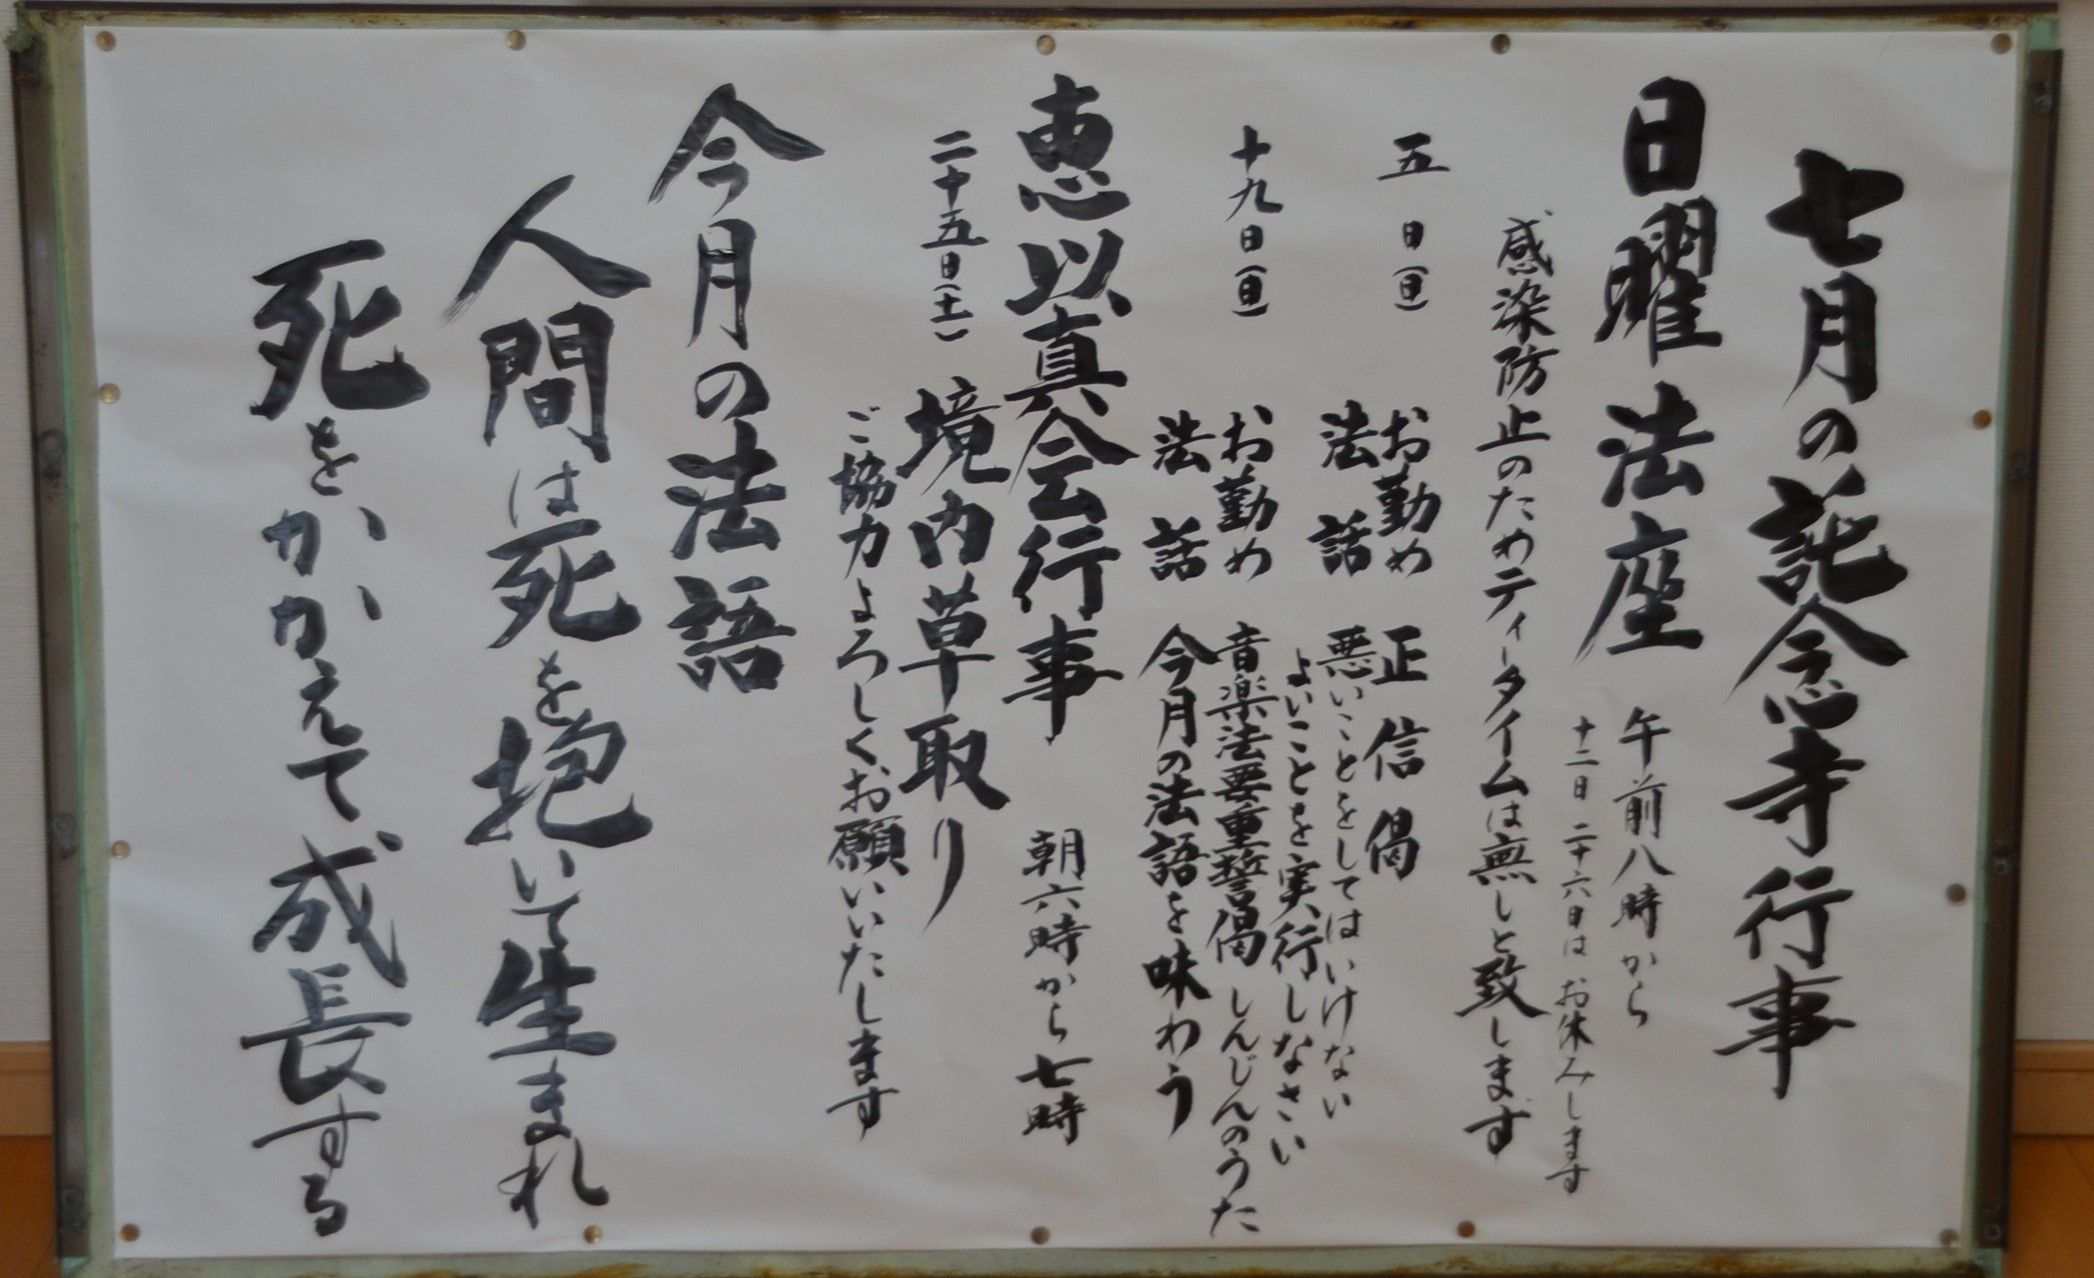 七月の託念寺行事
日曜法座 午前八時から
十二日 二十六日は お休みします
感染防止のためティータイムは無しと致します
五日(日) お勤め 正信偈
法話 悪いことをしてはいけない
よいことを実行しなさい
十九日(日) お勤め 音楽法要重誓偈 しんじんのうた
法話 今月の法語を味わう
恵以真会行事 朝六時から七時
二十五日(土) 境内草取り
ご協力よろしくお願いいたします
今月の法語
人間は死を抱いて生まれ
死をかかえて成長する